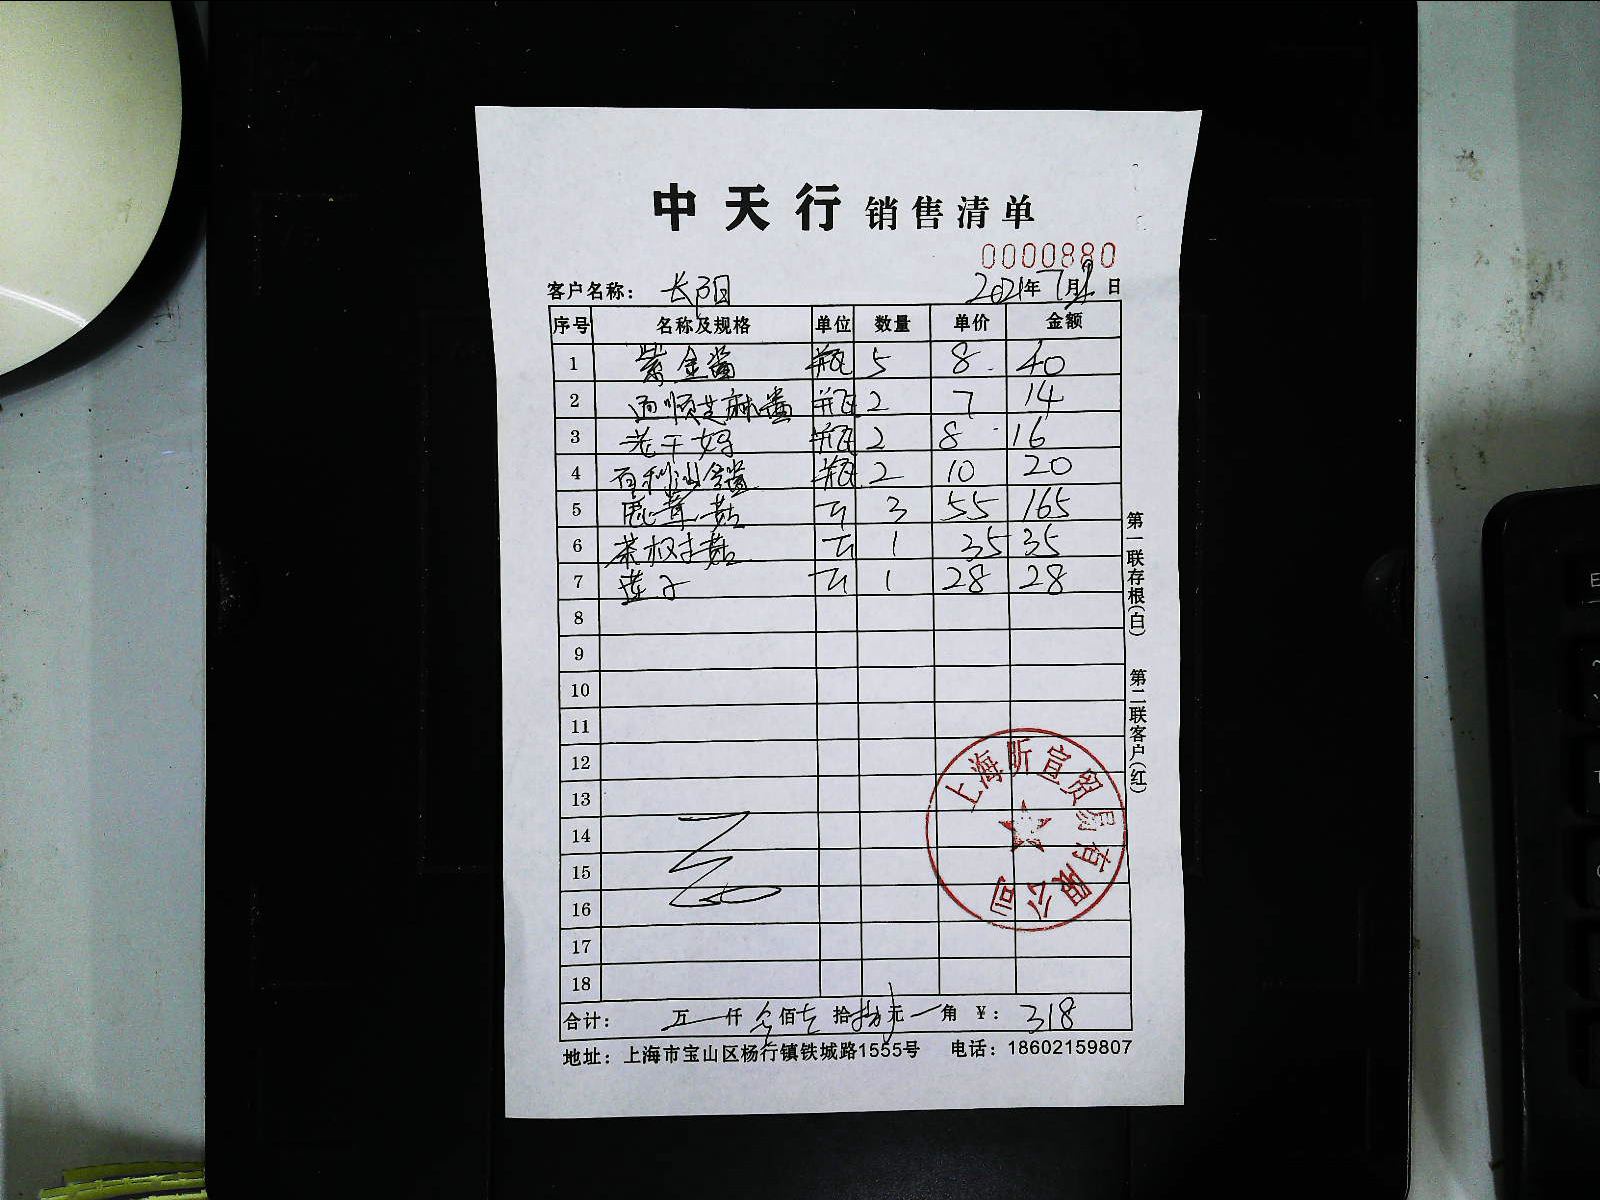 中天行 销售清单
0000880
客户名称： 长阳 2021年7月 日
序号 名称及规格 单位 数量 单价 金额
1 紫金酱 瓶 5 8 40
2 通顺芝麻酱 瓶 2 7 14
3 老干妈 瓶 2 8 16
4 百利沙拉酱 瓶 2 10 20
5 鹿茸菇 3 55 165
6 茶树菇 1 35 35
7 莲子 1 28 28
8
9
10
11
12
13
14
15
16
17
18
合计： 万 仟 叁佰 壹拾 捌元 角 ￥： 318
地址：上海市宝山区杨行镇铁城路1555号 电话：18602159807
第一联存根(白) 第二联客户(红)
上海昕宣贸易有限公司